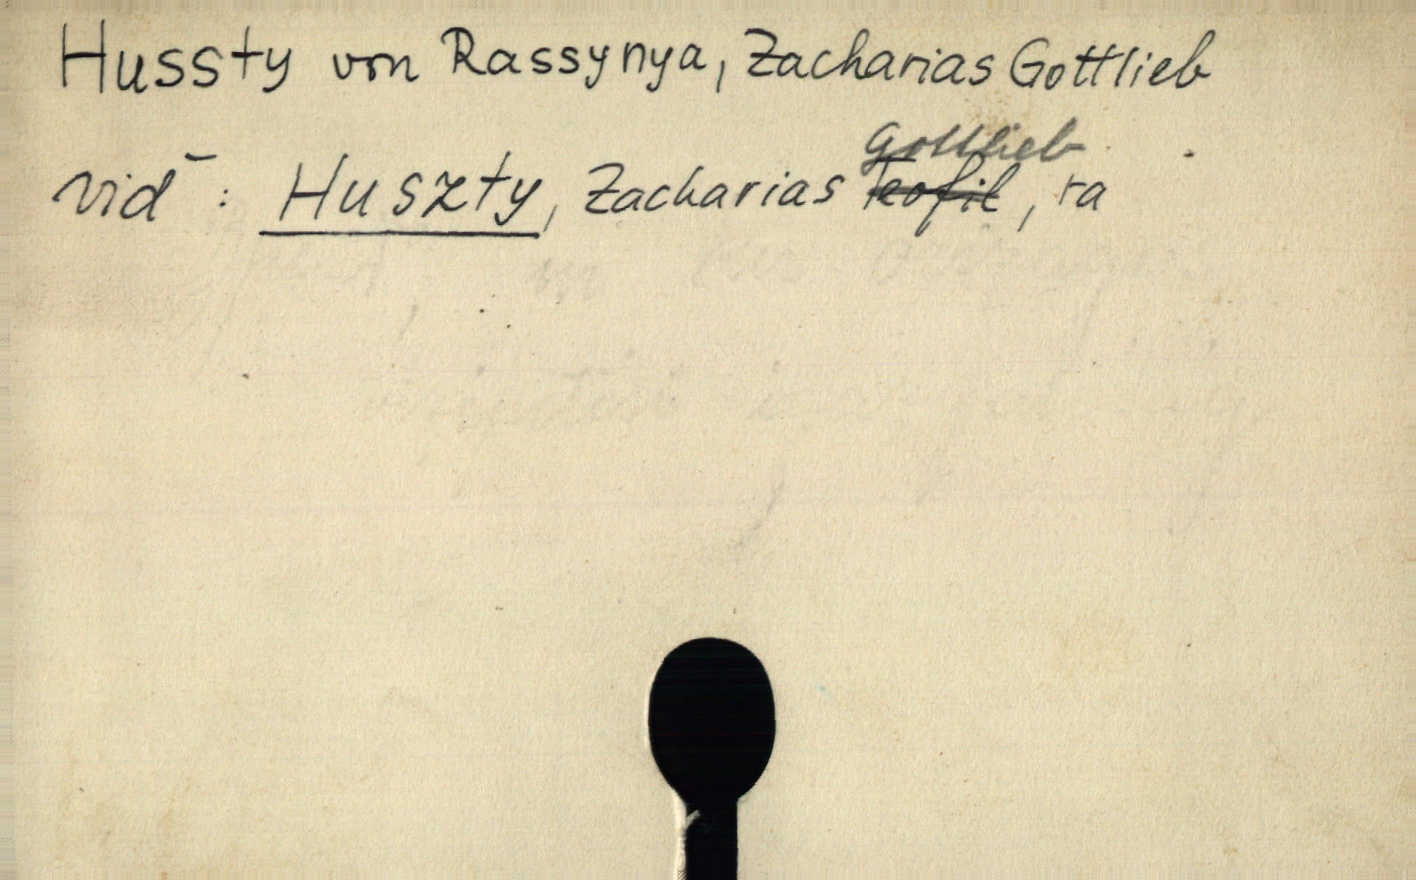 Hussty von Rassynya, Zacharias Gottlieb
Gottlieb
vid : Huszty, Zacharias Teofil, ra